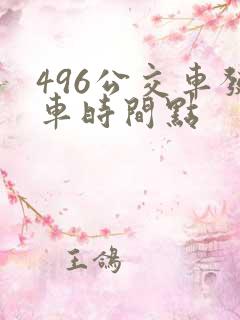 496公交車發
車時間點
王鴿